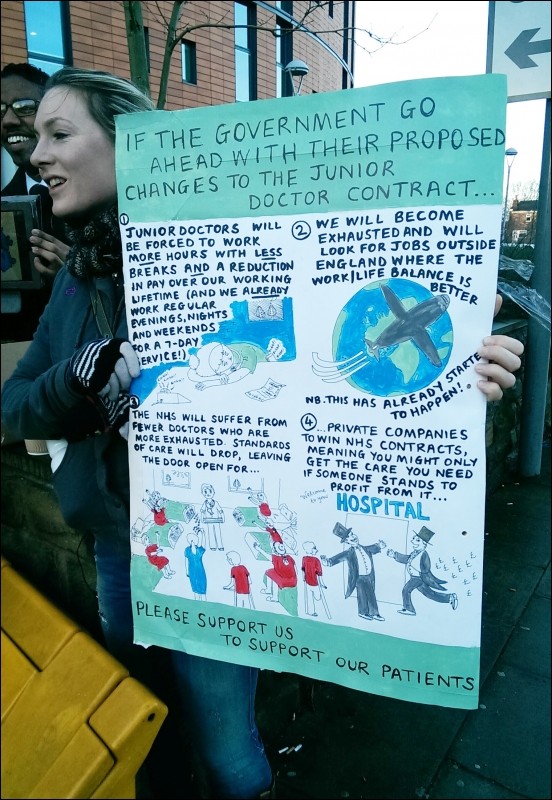 IF THE GOVERNMENT GO
AHEAD WITH THEIR PROPOSED
CHANGES TO THE JUNIOR
DOCTOR CONTRACT...
①
JUNIOR DOCTORS WILL
BE FORCED TO WORK
MORE HOURS WITH LESS
BREAKS AND A REDUCTION
IN PAY OVER OUR WORKING
LIFETIME (AND WE ALREADY
WORK REGULAR
EVENINGS, NIGHTS
AND WEEKENDS
FOR A 7-DAY
SERVICE!)
②
WE WILL BECOME
EXHAUSTED AND WILL
LOOK FOR JOBS OUTSIDE
ENGLAND WHERE THE
WORK/LIFE BALANCE IS
BETTER
NB. THIS HAS ALREADY STARTE
TO HAPPEN!
③
THE NHS WILL SUFFER FROM
FEWER DOCTORS WHO ARE
MORE EXHAUSTED. STANDARDS
OF CARE WILL DROP, LEAVING
THE DOOR OPEN FOR...
④
...PRIVATE COMPANIES
TO WIN NHS CONTRACTS,
MEANING YOU MIGHT ONLY
GET THE CARE YOU NEED
IF SOMEONE STANDS TO
PROFIT FROM IT...
Welcome to your
HOSPITAL
£ £ £ £ £ £
PLEASE SUPPORT US
TO SUPPORT OUR PATIENTS